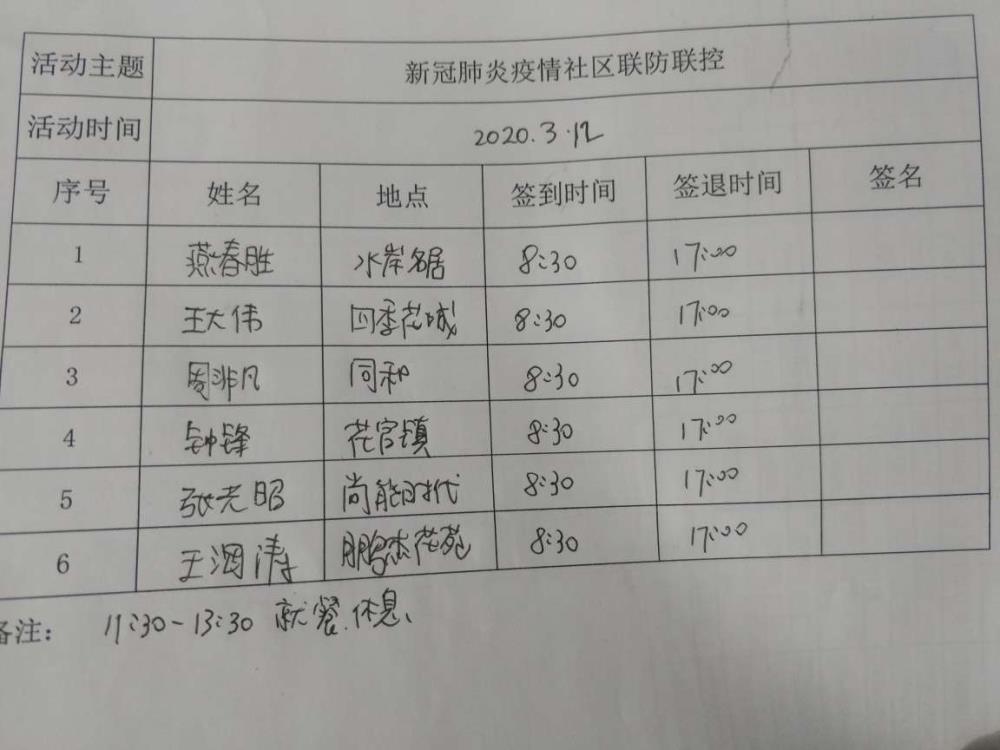 活动主题 新冠肺炎疫情社区联防联控
活动时间 2020.3.12
序号 姓名 地点 签到时间 签退时间 签名
1 燕春胜 水岸名居 8:30 17:00
2 王大伟 四季花城 8:30 17:00
3 周非凡 同和 8:30 17:00
4 钟锋 花官镇 8:30 17:00
5 张光昭 尚能时代 8:30 17:00
6 王润涛 鹏杰花苑 8:30 17:00
备注： 11:30-13:30 就餐、休息、